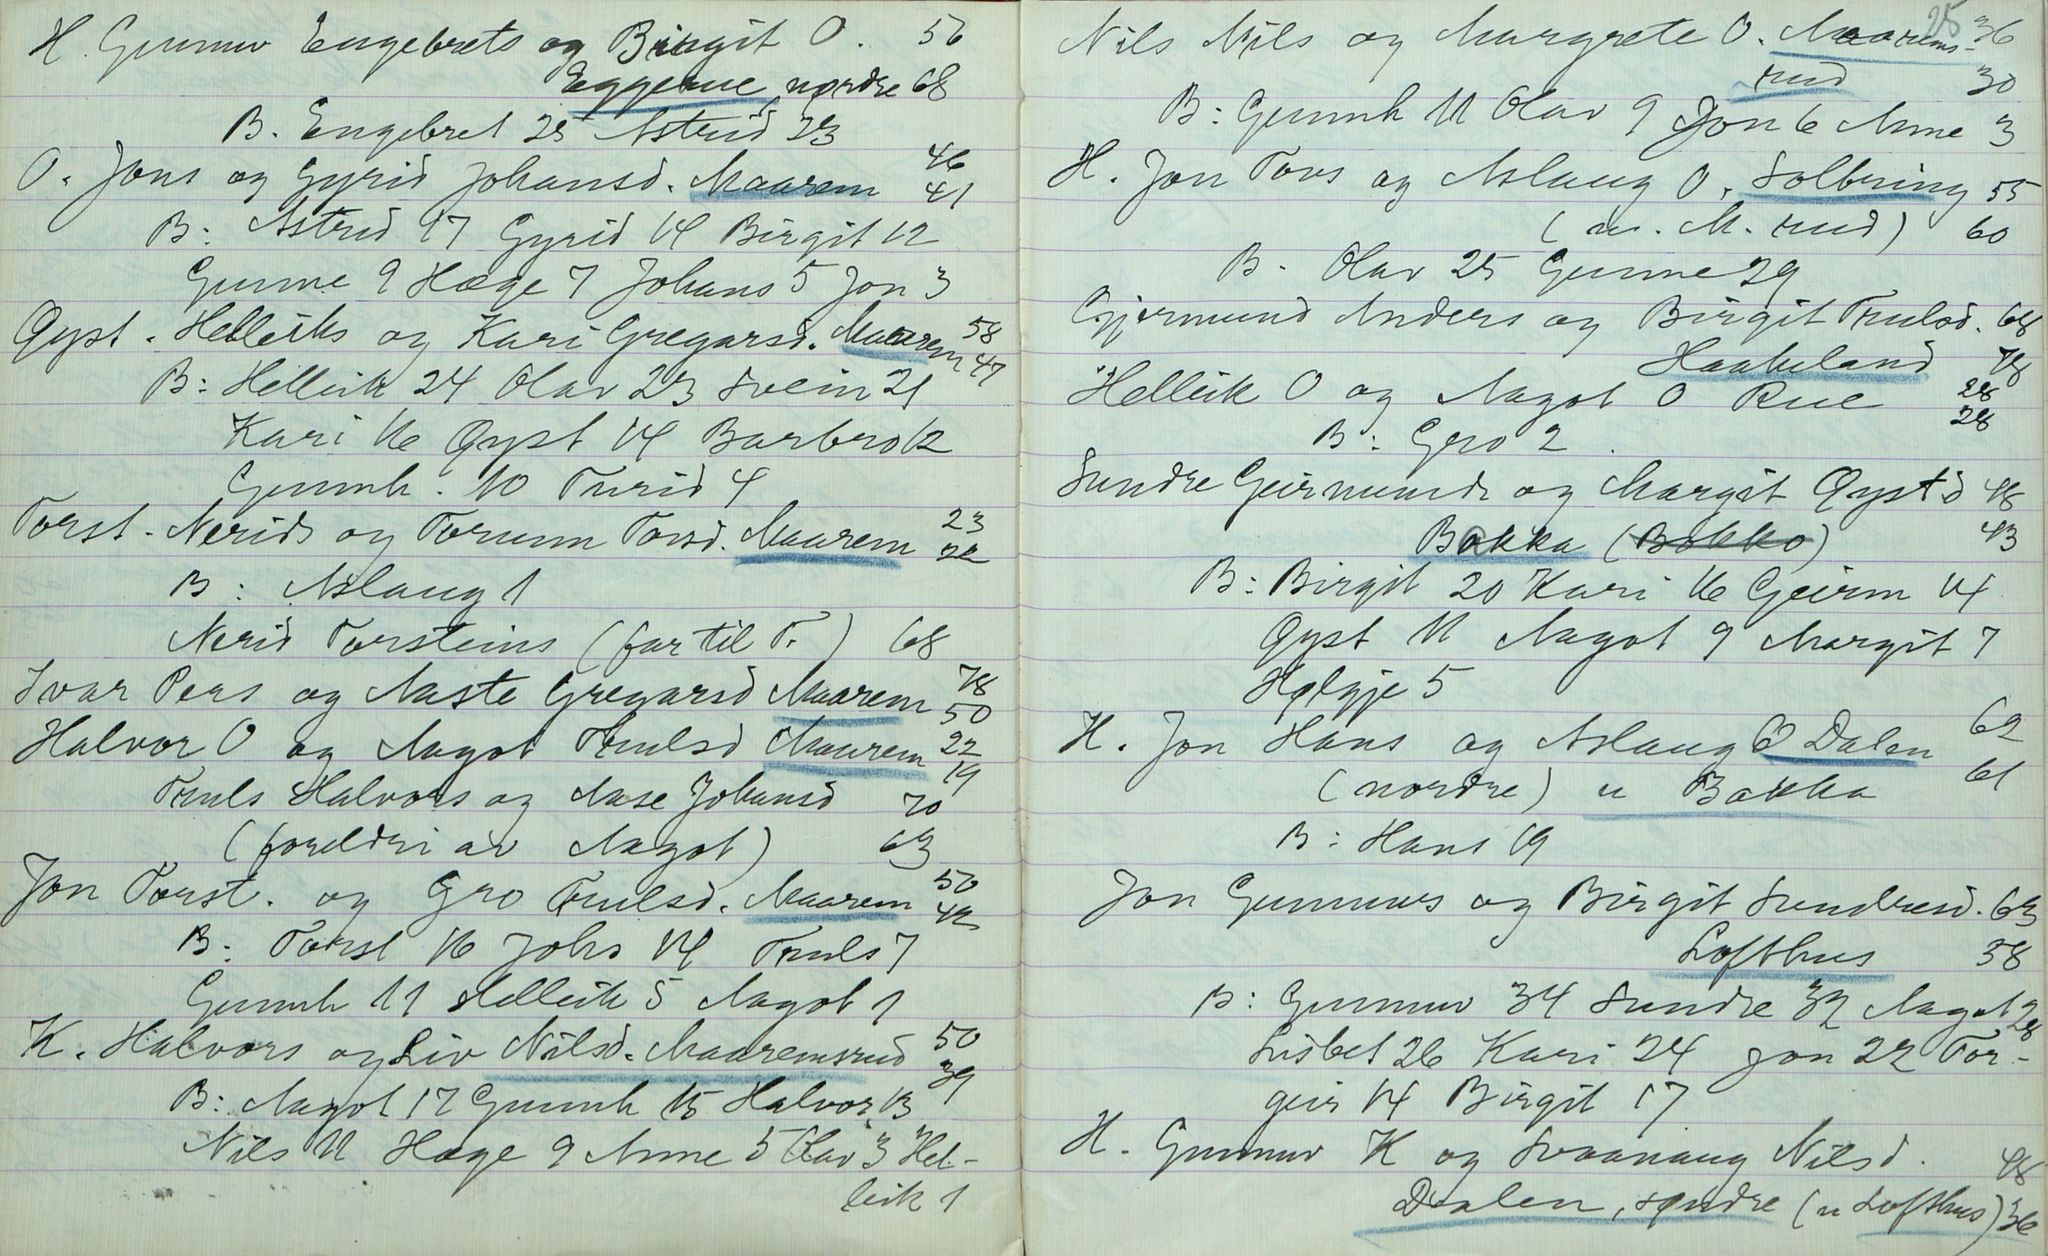 H. Gunnuv Engebrets og Birgit O. 56
Eggerue, nordre 68
B. Engebret 25 Astrid 23
O. Jons og Gyrid Johansd. Maarem 46 41
B: Astrid 17 Gyrid 14 Birgit 12
Gunne 9 Hæge 7 Johans 5 Jon 3
Øyst. Helleiks og Kari Gregarsd. Maarem 58 47
B: Helleik 24 Olav 23 Svein 21
Kari 16 Øyst 14 Barbro 12
Gunnh. 10 Turid 4
Torst. Nerids og Torunn Torsd. Maarem 23 22
B: Aslaug 1
Nerid Torsteins (far til T.) 68
Ivar Pers og Aaste Gregarsd Maarem 78 50
Halvor O og Aagot Trulsd Maarem 22 19
Truls Halvors og Aase Johansd 70
(foreldri av Aagot) 63
Jon Torst. og Gro Trulsd. Maarem 50 42
B: Torst 16 Johs 14 Truls 7
Gunnh 11 Helleik 5 Aagot 1
K. Halvors og Liv Nilsd. Maaremsrud 50 39
B: Aagot 17 Gunnh 15 Halvor 13
Nils 11 Hæge 9 Anne 5 Olav 3 Hel-
leik 1
25
Nils Nils og Margrete O. Maarems- 36
rud 30
B: Gunnh 11 Olav 9 Jon 6 Anne 3
H. Jon Tors og Aslaug O. Solbring 55
(u. M.rud) 60
B. Olav 25 Gunne 29
Gjermund Anders og Birgit Trulsd. 68
Haakeland 78
Helleik O og Aagot O Rue 28 28
B: Gro 2
Sundre Geirmunds og Margit Øystd 48
Bakka (Bokko) 43
B: Birgit 20 Kari 16 Geirm 14
Øyst 11 Aagot 9 Margit 7
Hølgje 5
H. Jon Hans og Aslaug O Dalen 62
(nordre) u Bakka 61
B: Hans 19
Jon Gunnuvs og Birgit Sundresd. 63
Lofthus 58
B: Gunnuv 34 Sundre 32 Aagot 28
Lisbet 26 Kari 24 Jon 22 Tor-
geir 14 Birgit 17
H. Gunnuv K og Svaanaug Nilsd. 48
Dalen, søndre (u Lofthus) 36